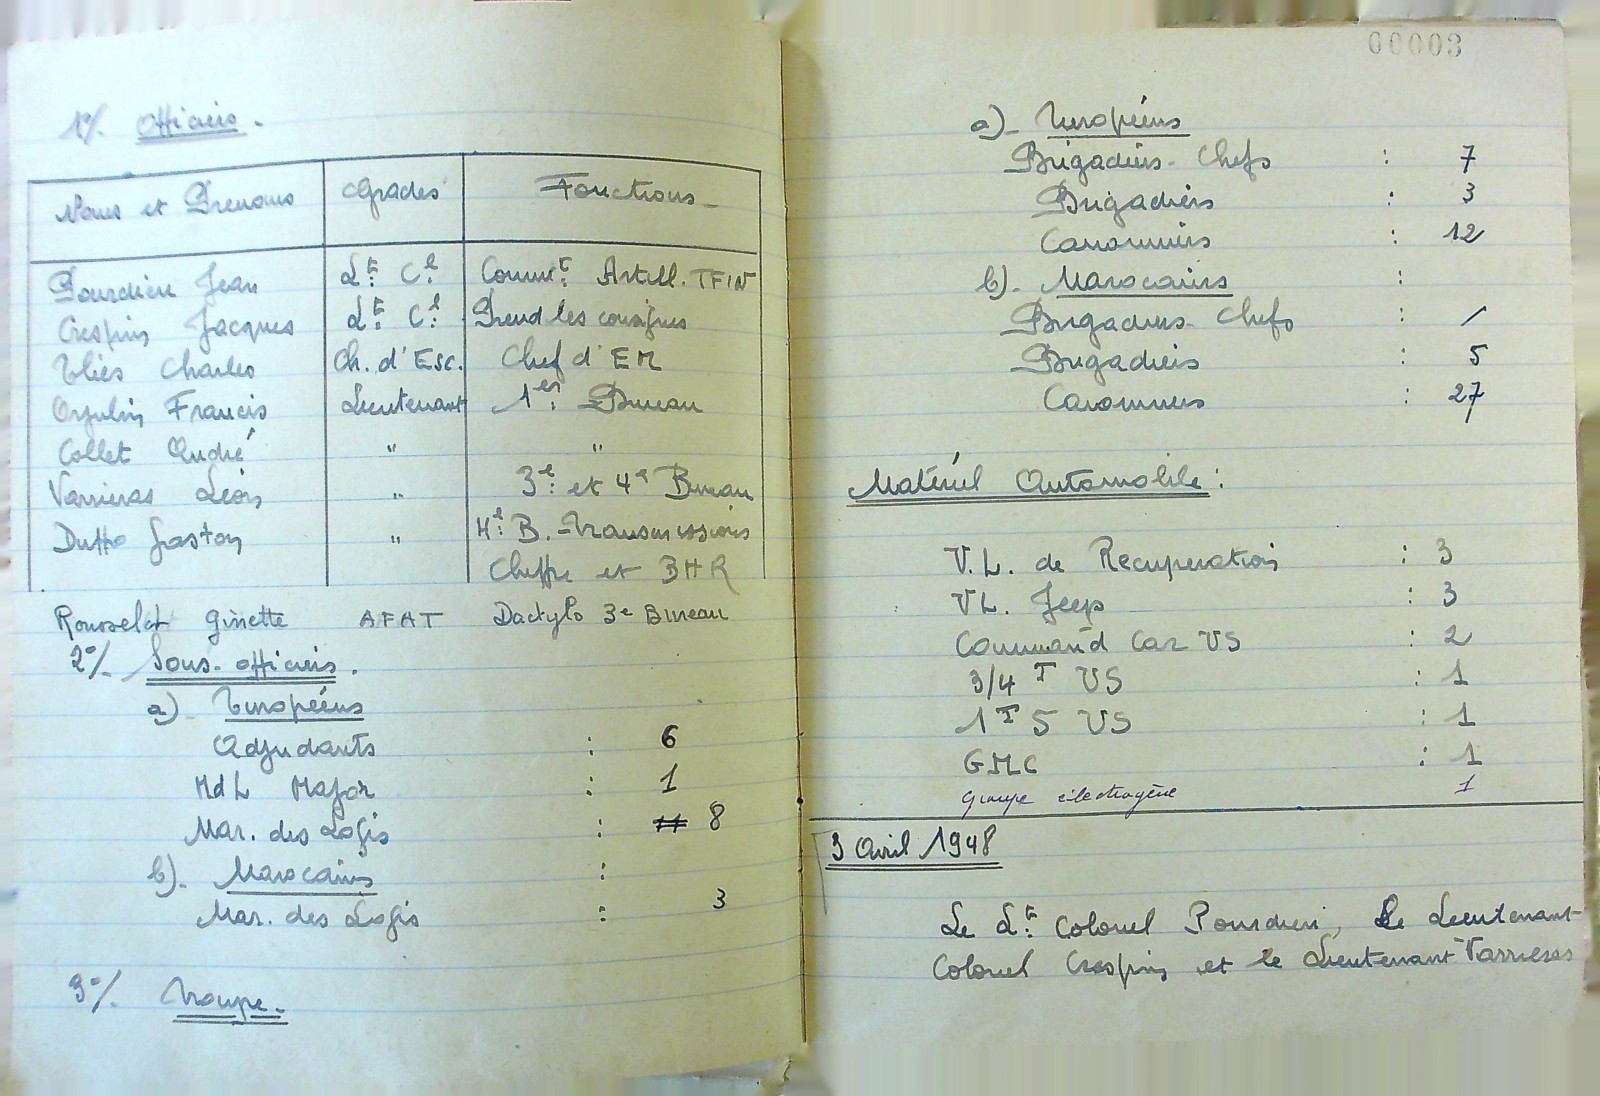 1°/. Officiers.
Noms et Prenoms Grades Fonctions
Pourdieu Jean Lt. Cl. Commt. Artill. TFIN
Crespin Jacques Lt. Cl. Prend les consignes
Charles Ch. d'Esc. Chef d'EM
Francis Lieutenant 1er. Bureau
Collet André " "
Varrieras Léon " 3e. et 4e Bureau
Gaston " 4e. B. - Transmissions
et BHR
Rousselot Ginette AFAT Dactylo 3e Bureau
2°/. Sous-officiers.
a)- Européens
Adjudants : 6
MdL Major : 1
Mar. des Logis : 8
b)- Marocains :
Mar. des Logis : 3
3°/. Troupe.
00003
a)- Européens
Brigadiers-Chefs : 7
Brigadiers : 3
Canonniers : 12
b)- Marocains :
Brigadiers-Chefs : /
Brigadiers : 5
Canonniers : 27
Matériel Automobile :
V.L. de Recuperation : 3
VL. Jeep : 3
Command Car US : 2
3/4 T US : 1
1T 5 US : 1
GMC : 1
Groupe électrogène 1
3 Avril 1948
Le Lt. Colonel Pourdieu, Le Lieutenant-
Colonel Crespin et le Lieutenant Varrieras